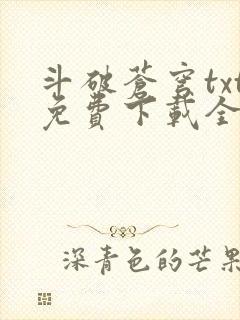 斗破蒼穹txt
免費下載全
深青色的芒果